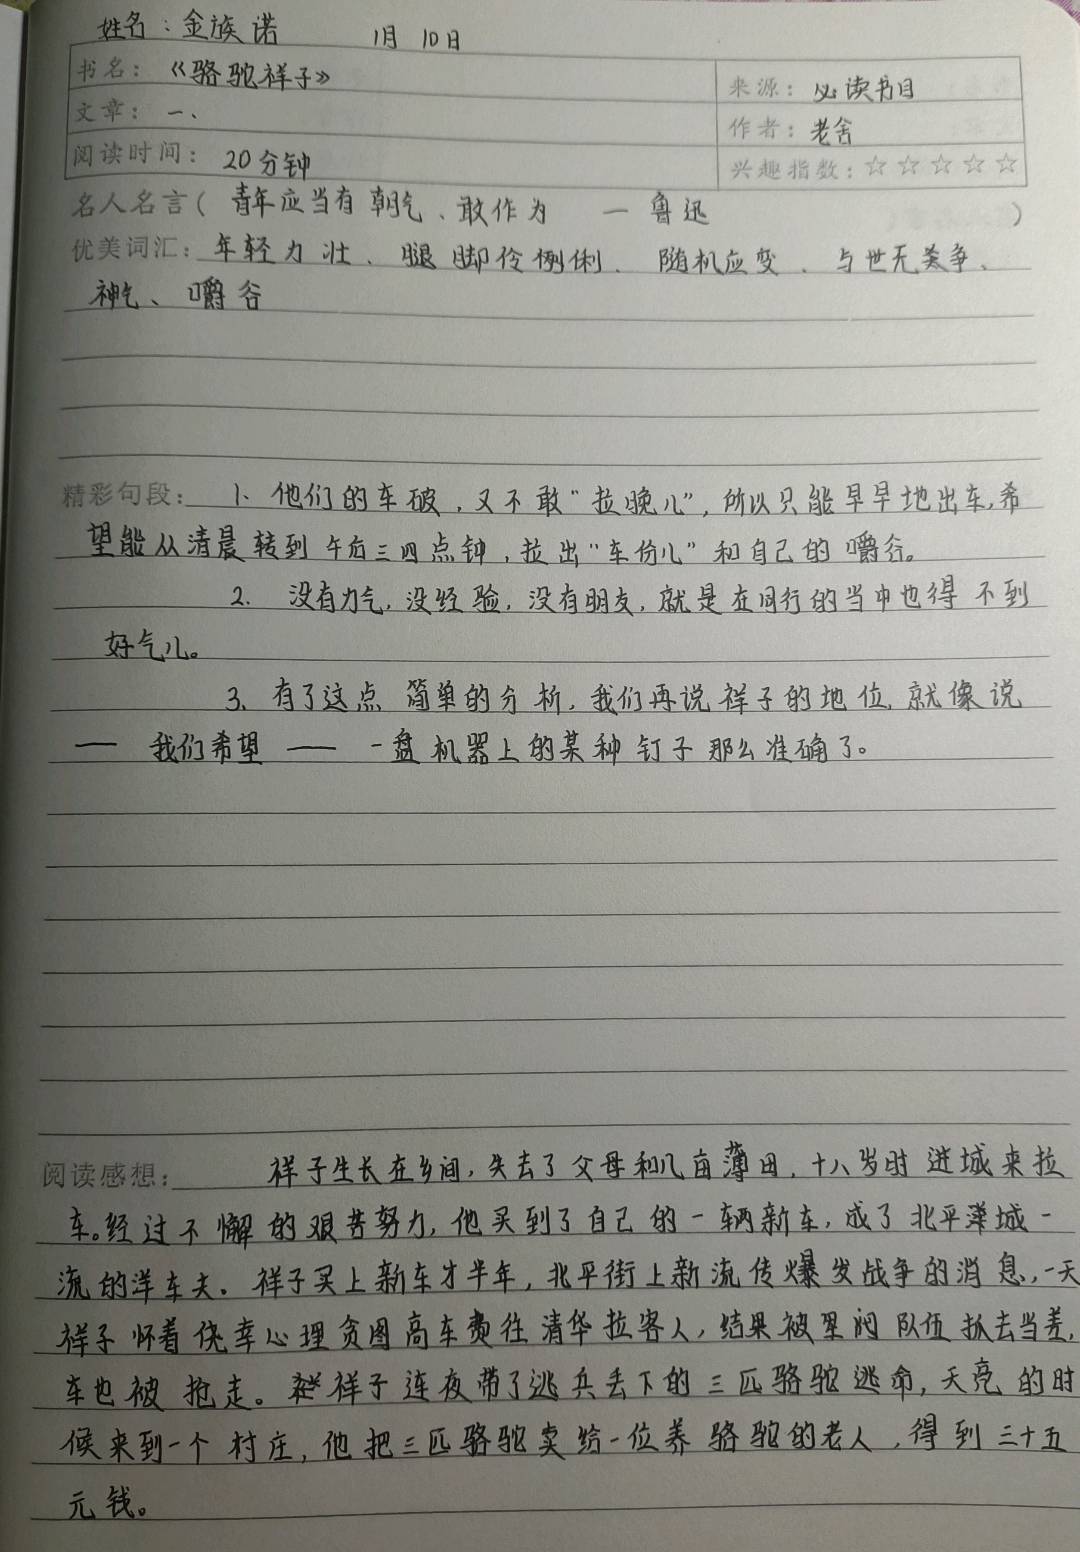 姓名：金族诺 1月10日
书名：《骆驼祥子》 来源：必读书目
文章：一、 作者：老舍
阅读时间：20分钟 兴趣指数：☆☆☆☆☆
名人名言（ 青年应当有朝气、敢作为 — 鲁迅 ）
优美词汇：年轻力壮、腿脚伶俐、随机应变、与世无争、
神气、嚼谷
精彩句段：1、他们的车破，又不敢“拉晚儿”，所以只能早早地出车，希
望能从清晨转到午后三四点钟，拉出“车份儿”和自己的嚼谷。
2. 没有力气，没经验，没有朋友，就是在同行的当中也得不到
好气儿。
3、有了这点简单的分析，我们再说祥子的地位，就像说
—— 我们希望 —— 一盘机器上的某种钉子那么准确了。
阅读感想： 祥子生长在乡间，失去了父母和几亩薄田，十八岁时进城来拉
车。经过不懈的艰苦努力，他买到了自己的一辆新车，成了北平洋城一
流的洋车夫。祥子买上新车才半年，北平街上新流传爆发战争的消息，一天
祥子怀着侥幸心理贪图高车费往清华拉客人，结果被 队伍抓去当差，
车也被抢走。祥子连夜带了逃兵丢下的三匹骆驼逃命，天亮的时
候来到一个村庄，他把三匹骆驼卖给一位养骆驼的老人，得到三十五
元钱。